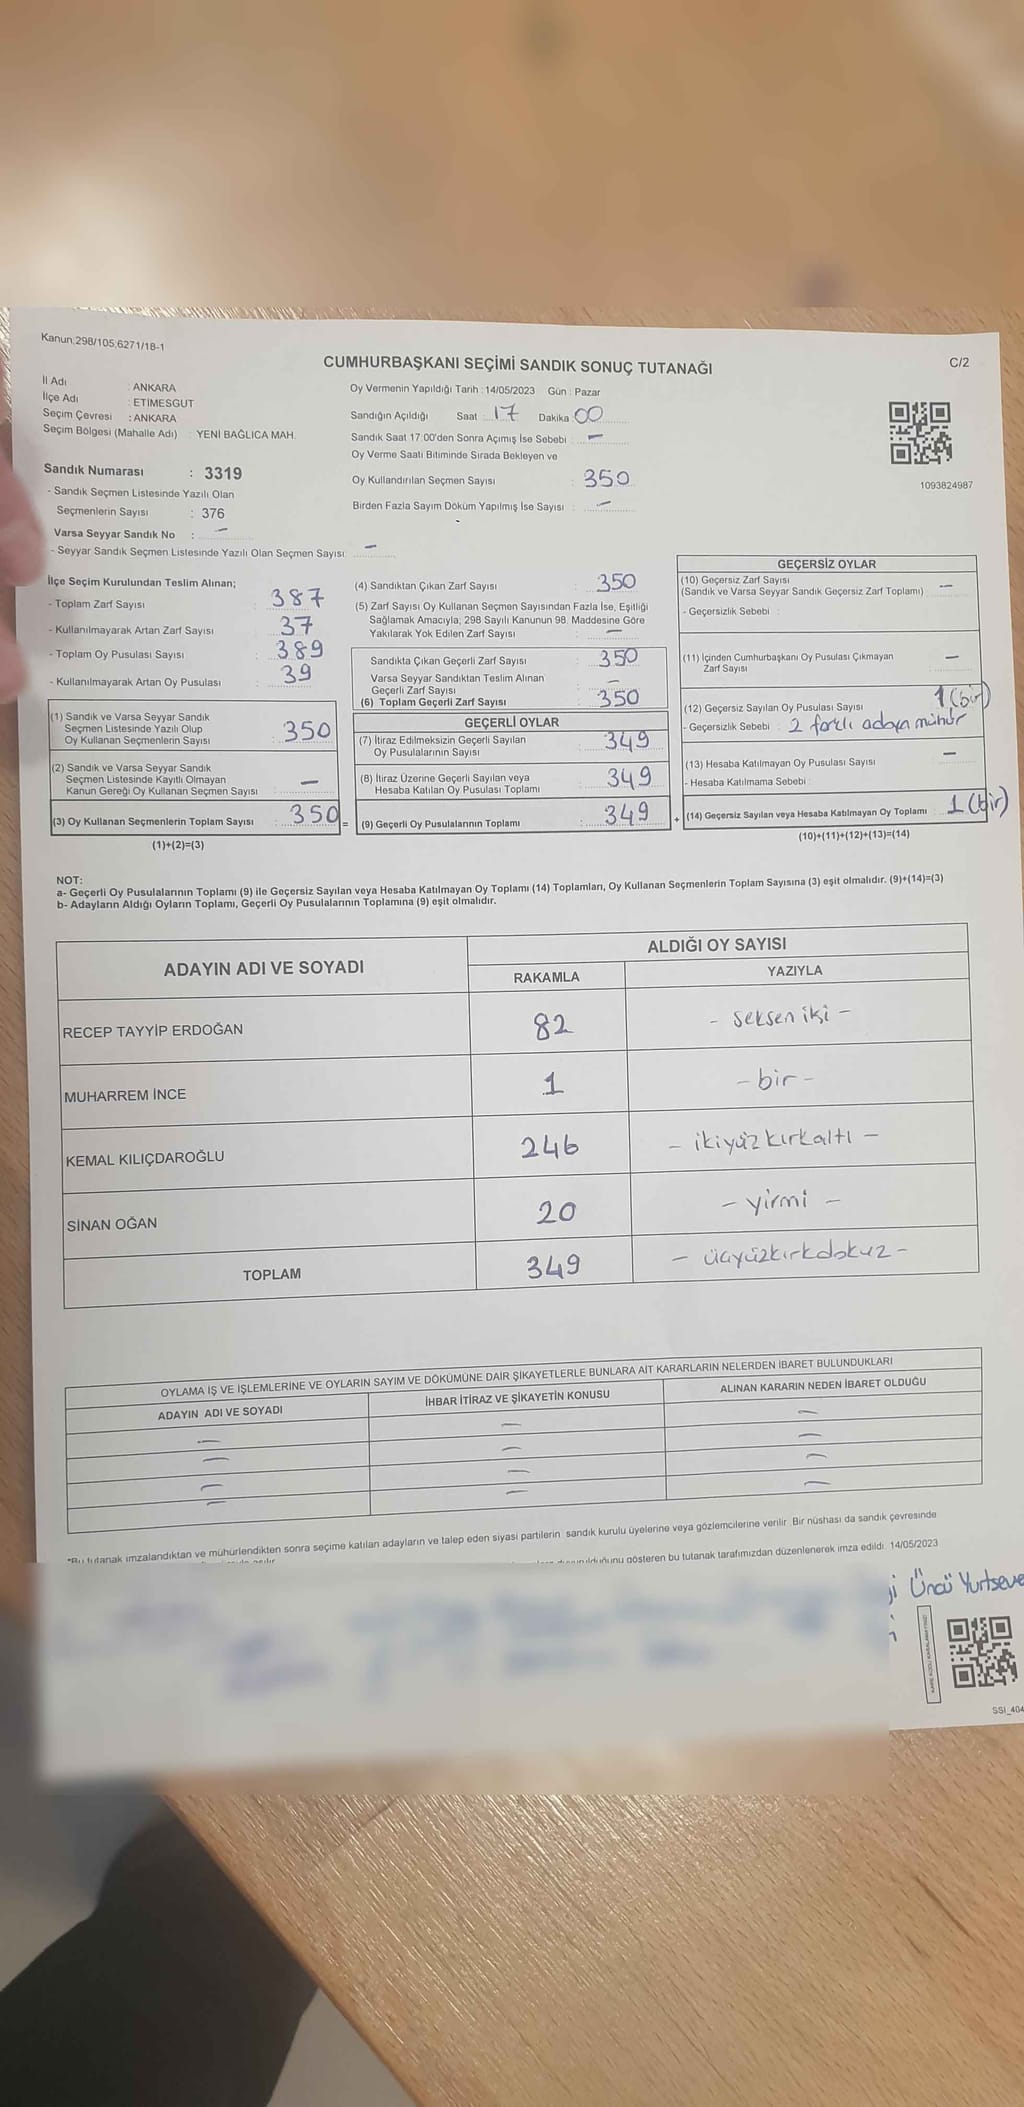 Kanun;298/105;6271/18-1
CUMHURBAŞKANI SEÇİMİ SANDIK SONUÇ TUTANAĞI
C/2
İl Adı : ANKARA
İlçe Adı : ETİMESGUT
Seçim Çevresi : ANKARA
Seçim Bölgesi (Mahalle Adı) : YENİ BAĞLICA MAH.
Sandık Numarası : 3319
- Sandık Seçmen Listesinde Yazılı Olan
Seçmenlerin Sayısı : 376
Varsa Seyyar Sandık No : —
- Seyyar Sandık Seçmen Listesinde Yazılı Olan Seçmen Sayısı: —
Oy Vermenin Yapıldığı Tarih : 14/05/2023 Gün : Pazar
Sandığın Açıldığı Saat : 17 Dakika 00
Sandık Saat 17:00'den Sonra Açımış İse Sebebi : —
Oy Verme Saati Bitiminde Sırada Bekleyen ve
Oy Kullandırılan Seçmen Sayısı : 350
Birden Fazla Sayım Döküm Yapılmış İse Sayısı : —
1093824987
İlçe Seçim Kurulundan Teslim Alınan;
- Toplam Zarf Sayısı : 387
- Kullanılmayarak Artan Zarf Sayısı : 37
- Toplam Oy Pusulası Sayısı : 389
- Kullanılmayarak Artan Oy Pusulası : 39
(1) Sandık ve Varsa Seyyar Sandık
Seçmen Listesinde Yazılı Olup
Oy Kullanan Seçmenlerin Sayısı : 350
(2) Sandık ve Varsa Seyyar Sandık
Seçmen Listesinde Kayıtlı Olmayan
Kanun Gereği Oy Kullanan Seçmen Sayısı : —
(3) Oy Kullanan Seçmenlerin Toplam Sayısı : 350 =
(1)+(2)=(3)
(4) Sandıktan Çıkan Zarf Sayısı : 350
(5) Zarf Sayısı Oy Kullanan Seçmen Sayısından Fazla İse, Eşitliği
Sağlamak Amacıyla, 298 Sayılı Kanunun 98. Maddesine Göre
Yakılarak Yok Edilen Zarf Sayısı : —
Sandıkta Çıkan Geçerli Zarf Sayısı : 350
Varsa Seyyar Sandıktan Teslim Alınan
Geçerli Zarf Sayısı : —
(6) Toplam Geçerli Zarf Sayısı : 350
GEÇERLİ OYLAR
(7) İtiraz Edilmeksizin Geçerli Sayılan
Oy Pusulalarının Sayısı : 349
(8) İtiraz Üzerine Geçerli Sayılan veya
Hesaba Katılan Oy Pusulası Toplamı : 349
(9) Geçerli Oy Pusulalarının Toplamı : 349 +
GEÇERSİZ OYLAR
(10) Geçersiz Zarf Sayısı
(Sandık ve Varsa Seyyar Sandık Geçersiz Zarf Toplamı) : —
- Geçersizlik Sebebi :
(11) İçinden Cumhurbaşkanı Oy Pusulası Çıkmayan
Zarf Sayısı : —
(12) Geçersiz Sayılan Oy Pusulası Sayısı 1 (bir)
- Geçersizlik Sebebi : 2 farklı adaya mühür
(13) Hesaba Katılmayan Oy Pusulası Sayısı : —
- Hesaba Katılmama Sebebi :
(14) Geçersiz Sayılan veya Hesaba Katılmayan Oy Toplamı : 1 (bir)
(10)+(11)+(12)+(13)=(14)
NOT:
a- Geçerli Oy Pusulalarının Toplamı (9) ile Geçersiz Sayılan veya Hesaba Katılmayan Oy Toplamı (14) Toplamları, Oy Kullanan Seçmenlerin Toplam Sayısına (3) eşit olmalıdır. (9)+(14)=(3)
b- Adayların Aldığı Oyların Toplamı, Geçerli Oy Pusulalarının Toplamına (9) eşit olmalıdır.
ADAYIN ADI VE SOYADI
ALDIĞI OY SAYISI
RAKAMLA YAZIYLA
RECEP TAYYİP ERDOĞAN 82 - seksen iki -
MUHARREM İNCE 1 - bir -
KEMAL KILIÇDAROĞLU 246 - ikiyüzkırkaltı -
SİNAN OĞAN 20 - yirmi -
TOPLAM 349 - üçyüzkırkdokuz -
OYLAMA İŞ VE İŞLEMLERİNE VE OYLARIN SAYIM VE DÖKÜMÜNE DAİR ŞİKAYETLERLE BUNLARA AİT KARARLARIN NELERDEN İBARET BULUNDUKLARI
ADAYIN ADI VE SOYADI
İHBAR İTİRAZ VE ŞİKAYETİN KONUSU
ALINAN KARARIN NEDEN İBARET OLDUĞU
— — —
— — —
— — —
— — —
*Bu tutanak imzalandıktan ve mühürlendikten sonra seçime katılan adayların ve talep eden siyasi partilerin sandık kurulu üyelerine veya gözlemcilerine verilir. Bir nüshası da sandık çevresinde
gösteren bu tutanak tarafımızdan düzenlenerek imza edildi. 14/05/2023
Öncü Yurtseve
SSI_404